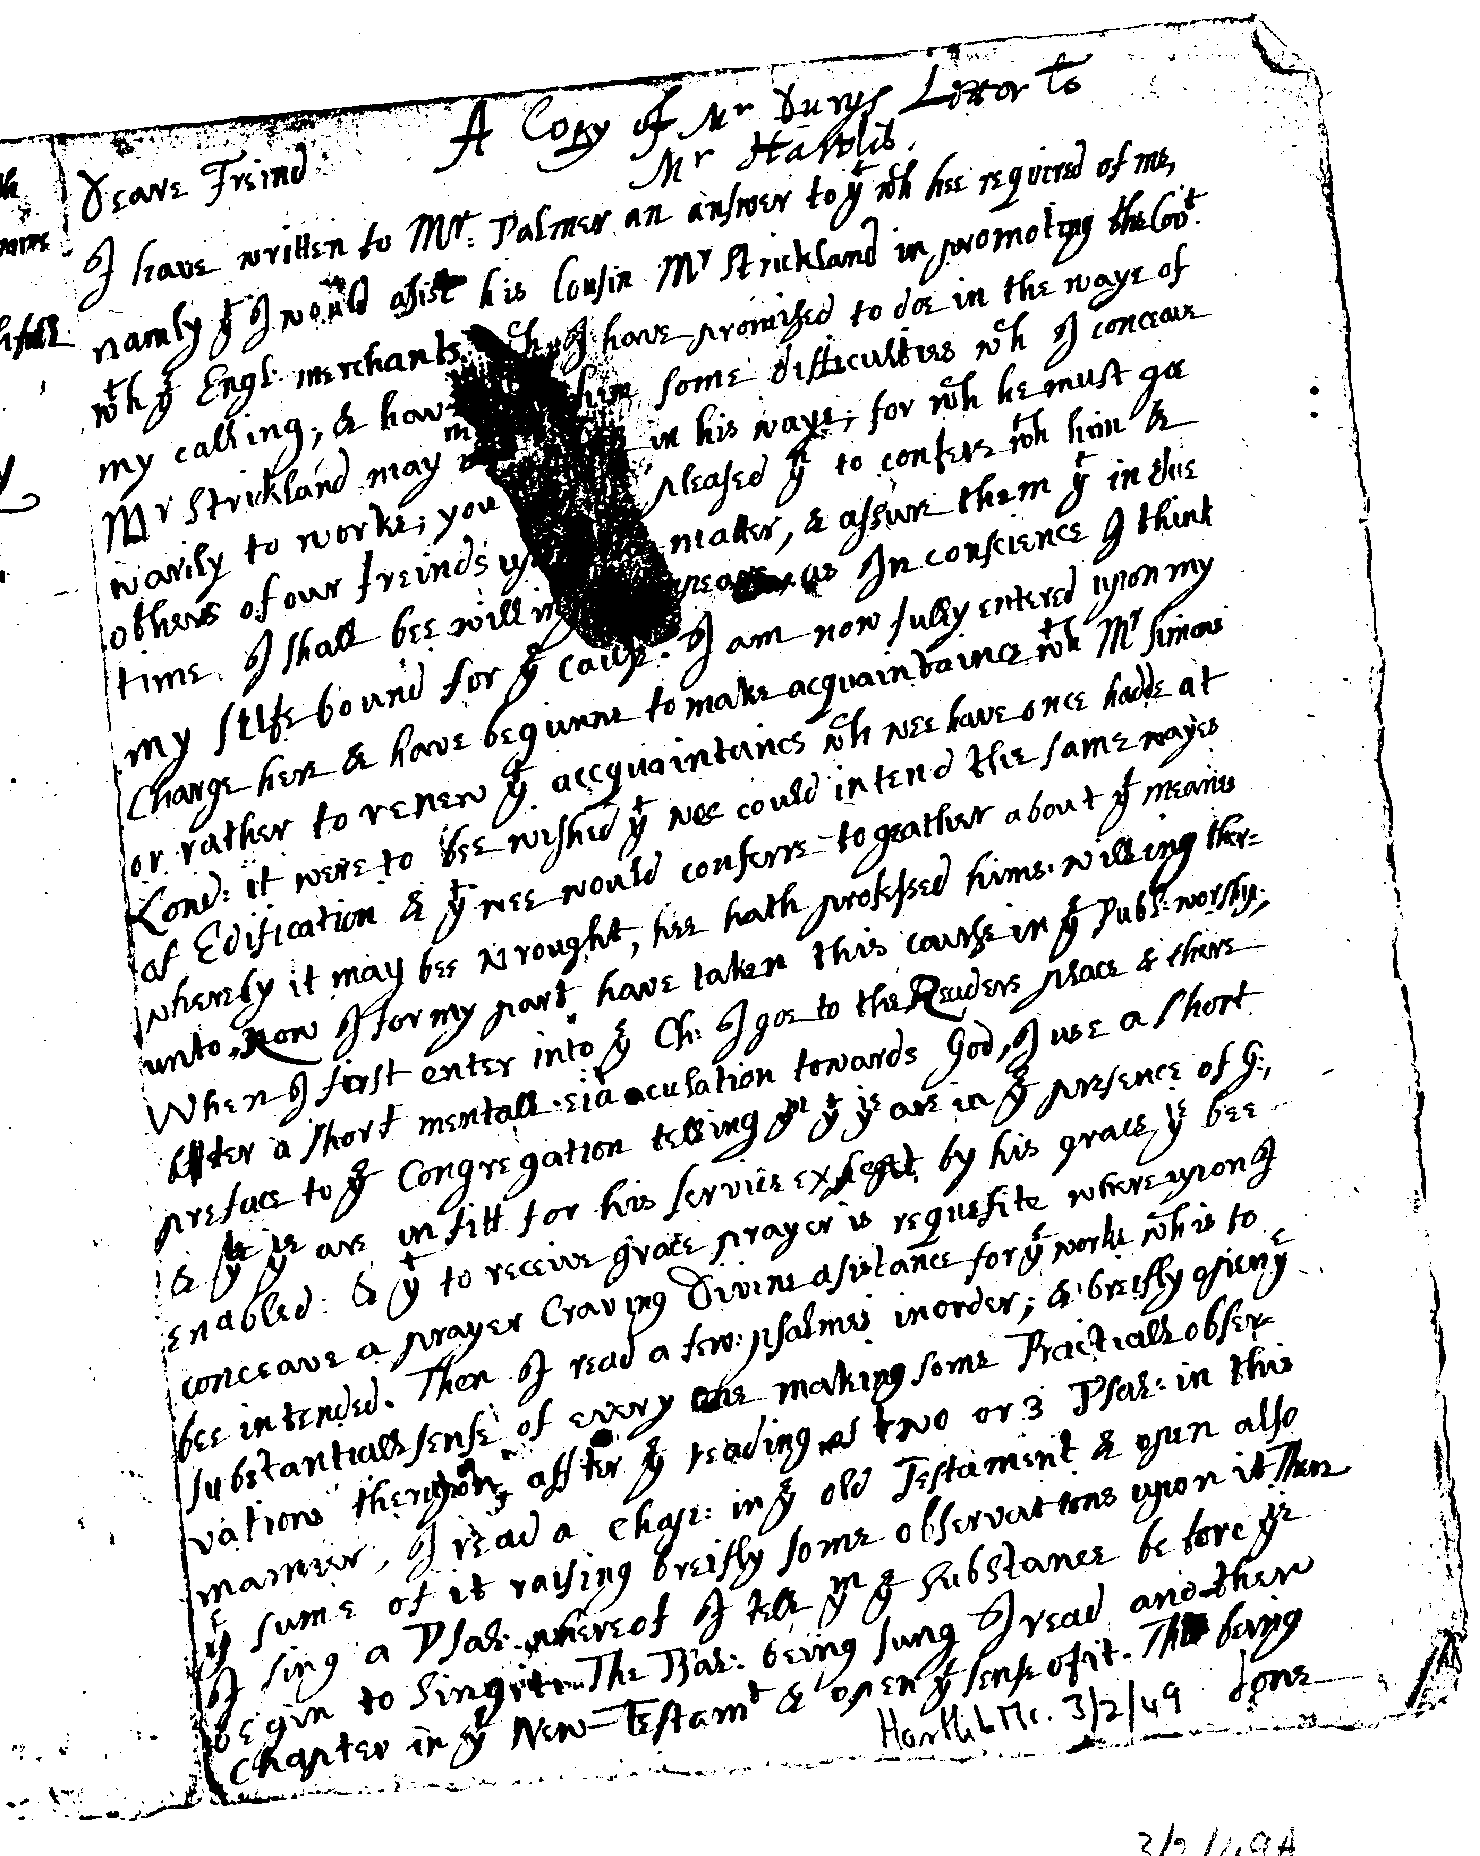 A Copy of Mr Durys Letter to
Mr Hartlib.
Deare Freind
I have written to Mr. Palmer an answer to yt wch hee required of me,
namly yt I would assist his Cousin Mr Strickland in promoting the Covt.
wth ye Engl: merchants wch I have promised to doe in the waye of
my calling; & have him some difficulties wch I conceave
Mr Strickland may in his waye; for wch he must goe
warily to worke; you pleased to conferre wth him &
others of our freinds matter, & assure them yt in due
time. I shall bee willing In conscience I think
my selfe bound for ye cause. I am now fully entered upon my
Charge here & have begunne to make acquaintaince wth Mr Simons
or rather to renew ye accquaintaince wch wee have once hadde at
Lond: it were to bee wished yt wee could intend the same wayes
of Edification & yt wee would conferre togeather about ye meanes
whereby it may bee wrought, hee hath professed hims. willing ther=
unto, Now I for my part have taken this course in ye Publ: worship,
When I first enter into ye Ch: I goe to the Readers place & there
after a short mentall eiaculation towards God, I use a short
preface to ye Congregation telling ym yt ye are in ye presence of G:,
& yt ye are unfitt for his service except by his grace ye bee
enabled: & yt to receive grace prayer is requesite whereupon I
conceave a prayer Craving Divine assistance for ye worke wch is to
bee intended. Then I read a few: psalmes in order; & breifly open ye
substantiall sense of every one making some Practicall obser=
vations thereupon, affter ye reading of two or 3 Psal: in this
manner, I read a Chap: in ye old Testament & open also
ye sume of it raising breifly some observations upon it Then
I sing a Psal: whereof I tell ym ye substance before ye
begin to Sing it. The Psal: being sung I read another
Chapter in ye New-Testamt & open ye sense of it. This being
done
Hartlib Mc. 3/2/49
3/2/49A